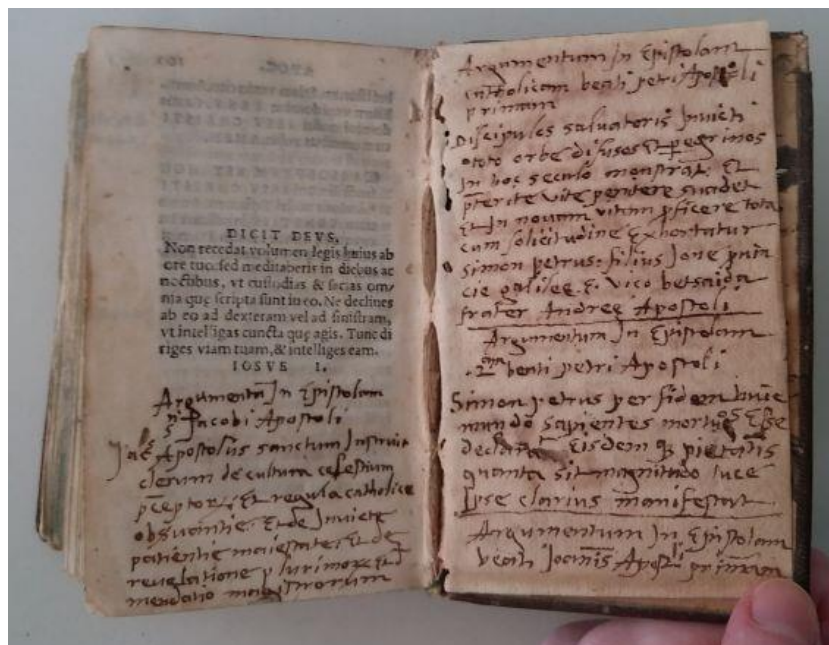 DICIT DEVS,
Non recedat volumen legis huius ab
ore tuo: sed meditaberis in diebus ac
noctibus, vt custodias & facias om-
nia quę scripta sunt in eo. Ne declines
ab eo ad dexteram vel ad sinistram,
vt intelligas cuncta quę agis. Tunc di
riges viam tuam, & intelliges eam.
IOSVE I.
Argumentū In Epistolam
Jacobi Apostoli
Apostolus sanctum Instruit
clerum de cultura celestium
pceptor. Et regula catholice
Et de
patientie maiestate: Et de
reuelatione plurimor
mendatio magistrorum
Argumentum In Epistolam
beati petri Apostoli
primam
Discipulos saluatoris Inuicti
toto orbe difusos Et pegrinos
In hoc seculo monstrat: Et
pterite vite penitere suadet
Et In nouam vitam pficere tota
cum solicitudine Exhortatur
Simon petrus: filius Jone
galilee. E. vico betsaida
frater Andreę Apostoli
Argumentum In Epistolam
beati petri Apostoli
Simon petrus per fidem huic
mundo sapientes mortuos Esse
declarat Eisdem q pietatis
quanta sit magnitudo luce
Ipse clarius manifestat
Argumentum In Epistolam
beati Joannis Apostoli primam